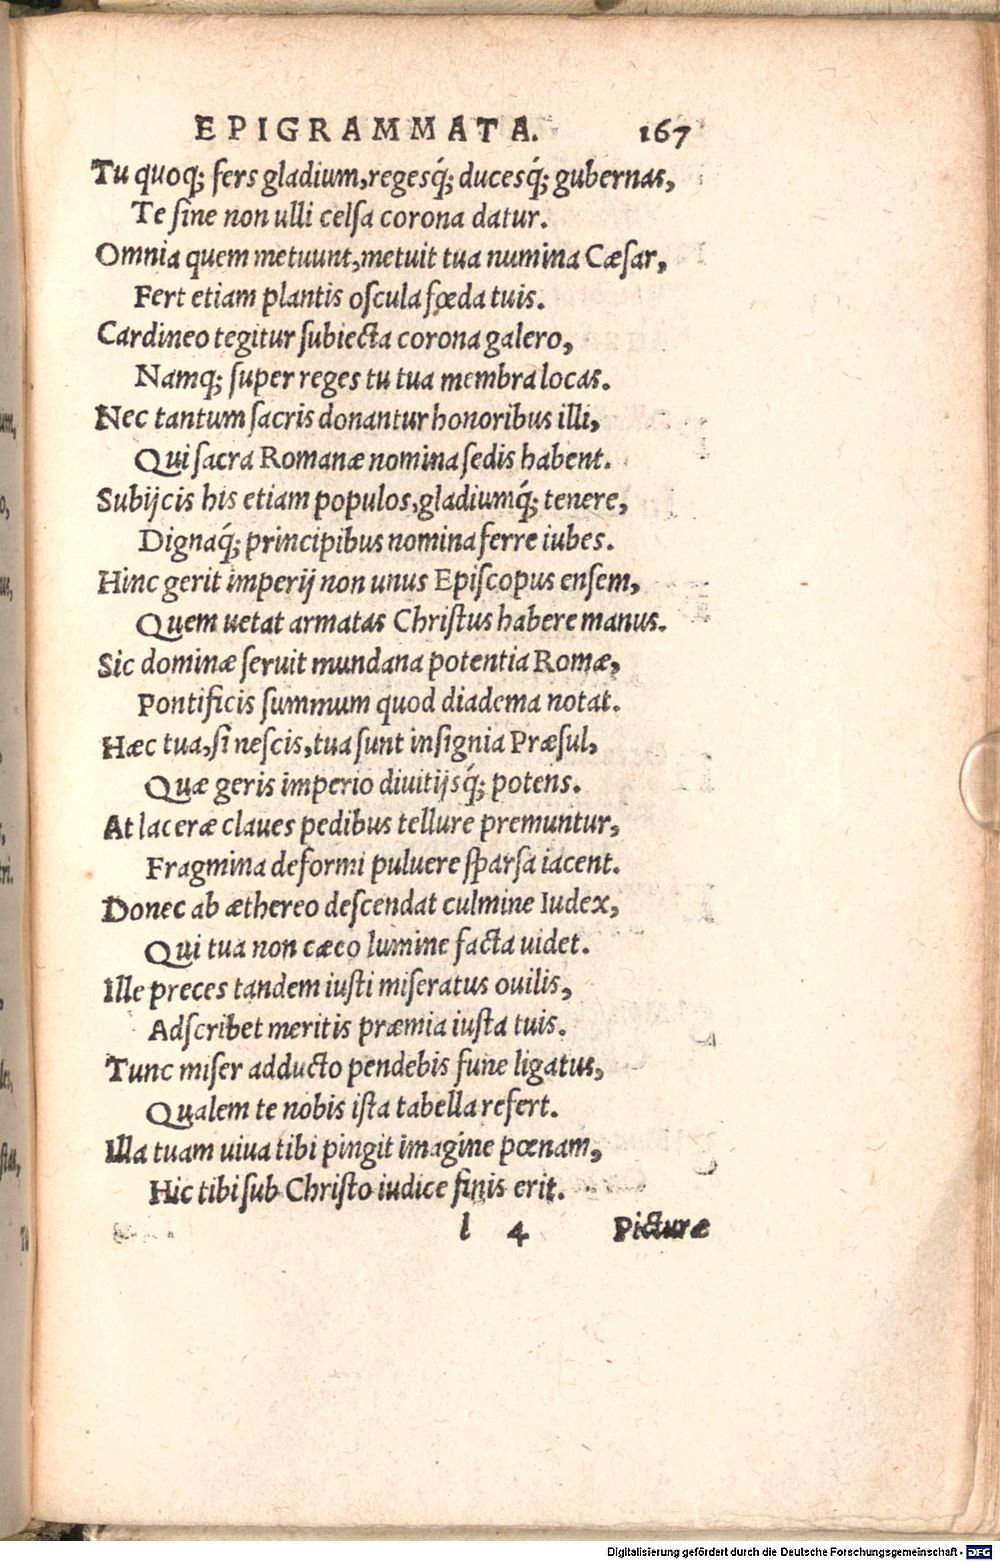 EPIGRAMMATA. 167
Tu quoq; fers gladium, regesq́; ducesq́; gubernas,
Te ſine non ulli celſa corona datur.
Omnia quem metuunt, metuit tua numina Cæſar,
Fert etiam plantis oſcula fœda tuis.
Cardineo tegitur ſubiecta corona galero,
Namq; ſuper reges tu tua membra locas.
Nec tantum ſacris donantur honoribus illi,
Qui ſacra Romanæ nomina ſedis habent.
Subijcis his etiam populos, gladiumq́; tenere,
Dignaq́; principibus nomina ferre iubes.
Hinc gerit imperij non unus Epiſcopus enſem,
Quem uetat armatas Chriſtus habere manus.
Sic dominæ ſeruit mundana potentia Romæ,
Pontificis ſummum quod diadema notat.
Hæc tua, ſi neſcis, tua ſunt inſignia Præſul,
Quæ geris imperio diuitijsq́; potens.
At laceræ claues pedibus tellure premuntur,
Fragmina deformi puluere ſparſa iacent.
Donec ab æthereo deſcendat culmine Iudex,
Qui tua non cæco lumine facta uidet.
Ille preces tandem iuſti miſeratus ouilis,
Adſcribet meritis præmia iuſta tuis.
Tunc miſer adducto pendebis fune ligatus,
Qualem te nobis iſta tabella refert.
Illa tuam uiua tibi pingit imagine pœnam,
Hic tibi ſub Chriſto iudice finis erit.
l 4 Picturæ
Digitalisierung gefördert durch die Deutsche Forschungsgemeinschaft - DFG